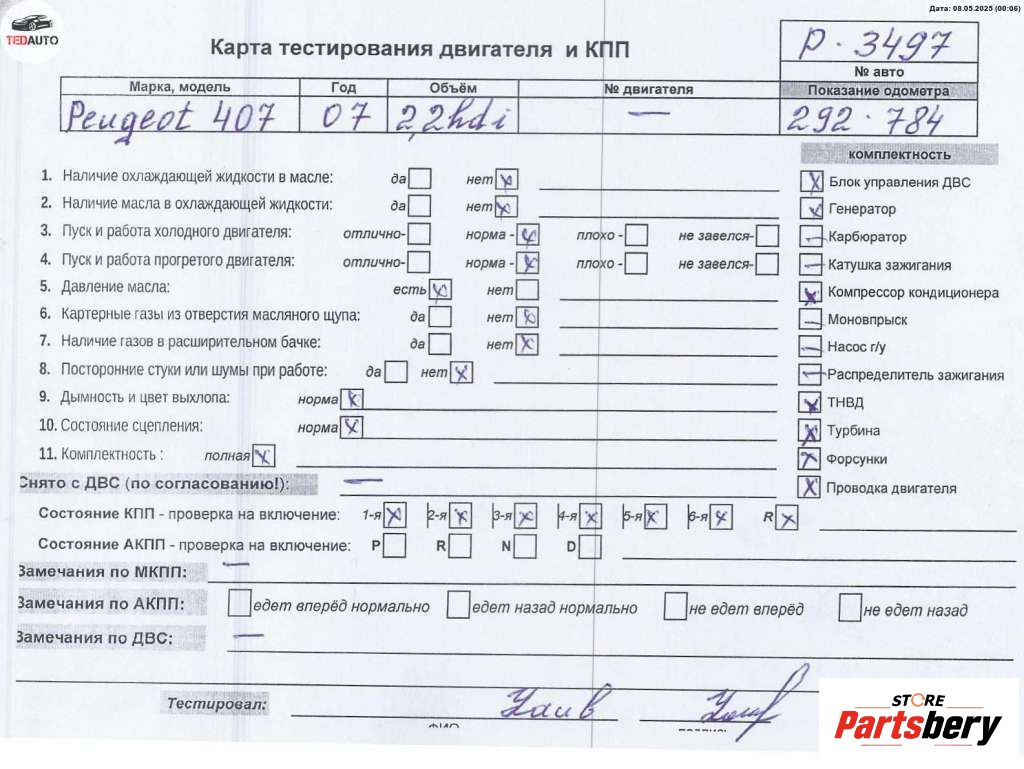 Дата: 08.05.2025 (00:06)
TEDAUTO
Карта тестирования двигателя и КПП
P · 3497
№ авто
Марка, модель Год Объём № двигателя Показание одометра
Peugeot 407 07 2,2hdi — 292 · 784
комплектность
1. Наличие охлаждающей жидкости в масле: да нет x
2. Наличие масла в охлаждающей жидкости: да нет x
3. Пуск и работа холодного двигателя: отлично- норма - x плохо - не завелся-
4. Пуск и работа прогретого двигателя: отлично- норма - x плохо - не завелся-
5. Давление масла: есть x нет
6. Картерные газы из отверстия масляного щупа: да нет x
7. Наличие газов в расширительном бачке: да нет x
8. Посторонние стуки или шумы при работе: да нет x
9. Дымность и цвет выхлопа: норма x
10. Состояние сцепления: норма x
11. Комплектность : полная x
x Блок управления ДВС
x Генератор
— Карбюратор
— Катушка зажигания
x Компрессор кондиционера
— Моновпрыск
— Насос г/у
— Распределитель зажигания
x ТНВД
x Турбина
x Форсунки
x Проводка двигателя
Снято с ДВС (по согласованию!): —
Состояние КПП - проверка на включение: 1-я x 2-я x 3-я x 4-я x 5-я x 6-я x R x
Состояние АКПП - проверка на включение: P R N D
Замечания по МКПП: —
Замечания по АКПП: едет вперёд нормально едет назад нормально не едет вперёд не едет назад
Замечания по ДВС: —
Тестировал:
STORE
Partsbery